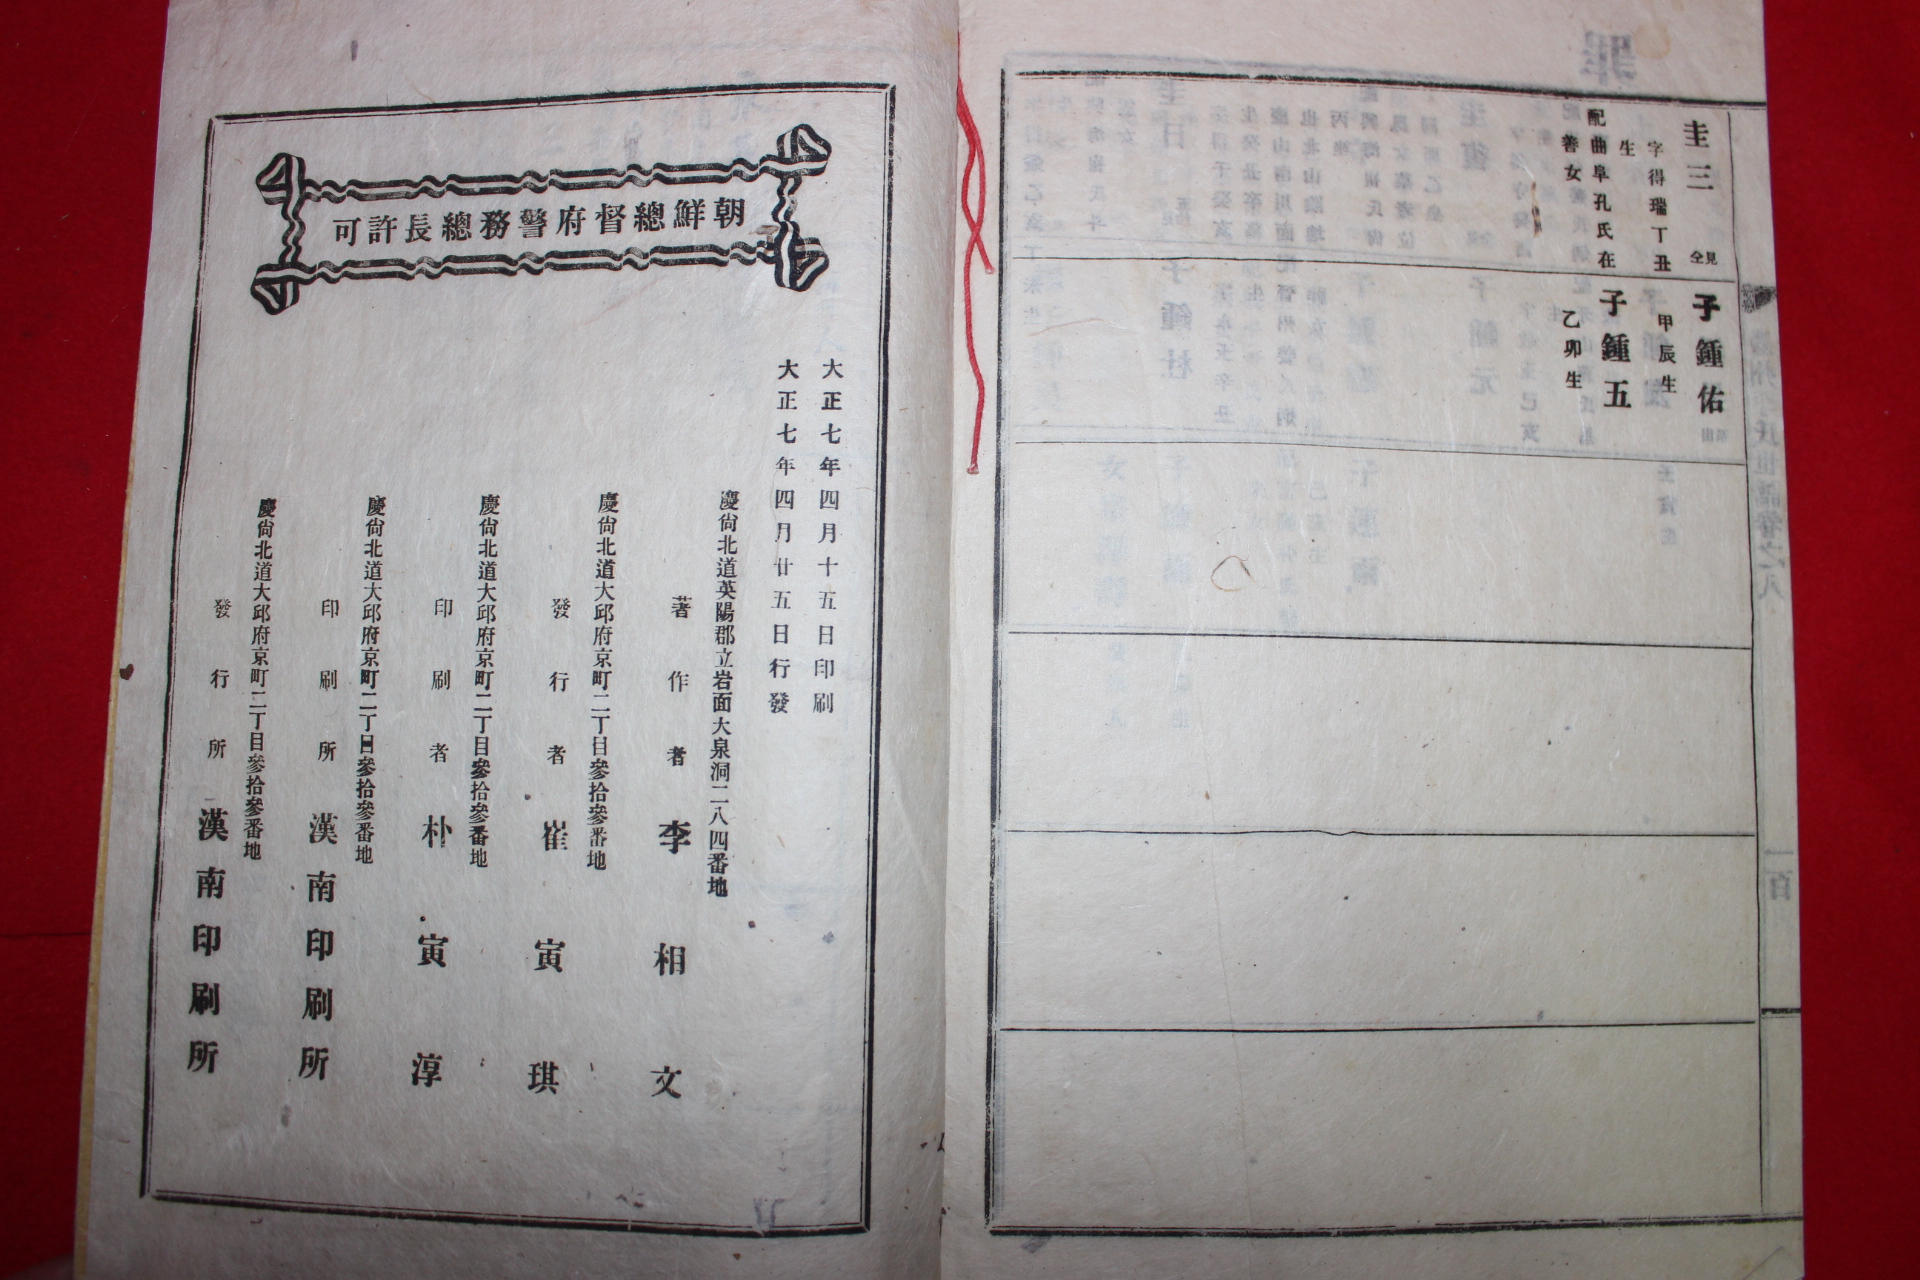 圭三
見仝
字得瑞丁丑
生
配曲阜孔氏在
善女
子鍾佑
甲辰生
子鍾五
乙卯生
朝鮮總督府警務總長許可
大正七年四月十五日印刷
大正七年四月廿五日行發
慶尙北道英陽郡立岩面大泉洞二八四番地
著作者 李相文
慶尙北道大邱府京町二丁目參拾參番地
發行者 崔寅琪
慶尙北道大邱府京町二丁目參拾參番地
印刷者 朴寅淳
慶尙北道大邱府京町二丁目參拾參番地
印刷所 漢南印刷所
慶尙北道大邱府京町二丁目參拾參番地
發行所 漢南印刷所